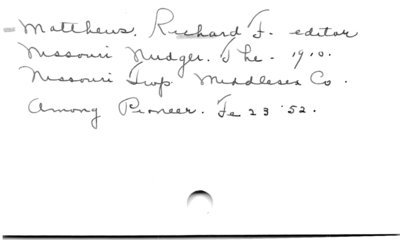 Matthews, Richard F. editor
Missouri Nudger. The - 1910.
Missouri Trop Middlesex Co.
Among Pioneer. Fe 23 '52.